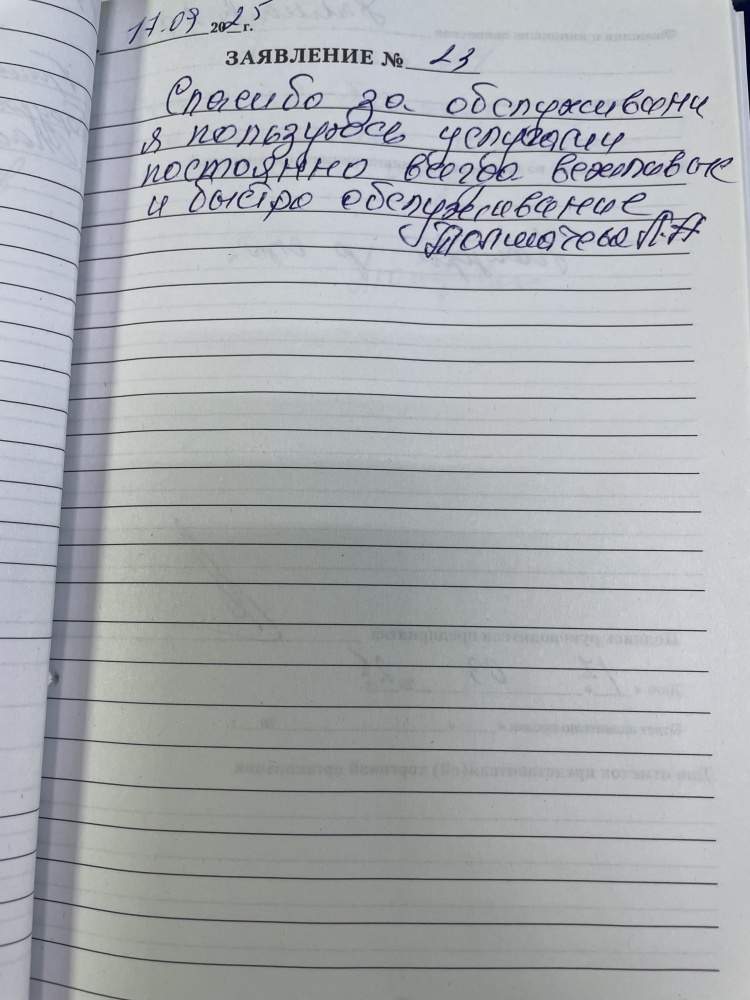 17.09 2025 г.
ЗАЯВЛЕНИЕ № 23
Спасибо за обслуживани
я пользуюсь услугами
постоянно всегда вежливые
и быстро обслуживание
Толмачева Л.А